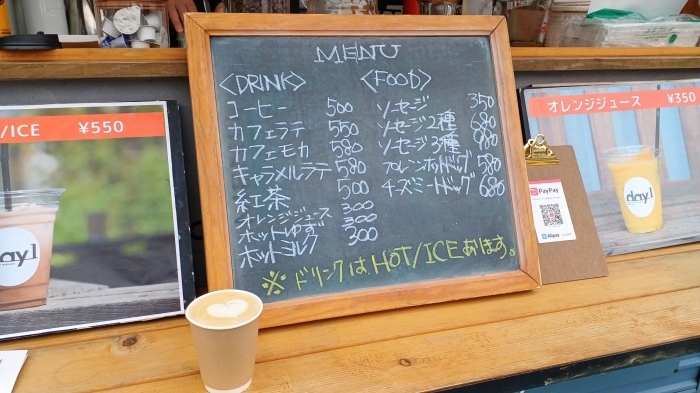 MENU
<DRINK>
コーヒー 500
カフェラテ 550
カフェモカ 580
キャラメルラテ 580
紅茶 500
オレンジジュース 300
ホットゆず 300
ホットミルク 300
<FOOD>
ソーセージ 350
ソーセージ2種 680
ソーセージ3種 980
プレーンホットドッグ 580
チーズミートドッグ 680
※ドリンクは HOT/ICEあります。
/ICE ¥550
day1
オレンジジュース ¥350
day1
PayPay
Alipay